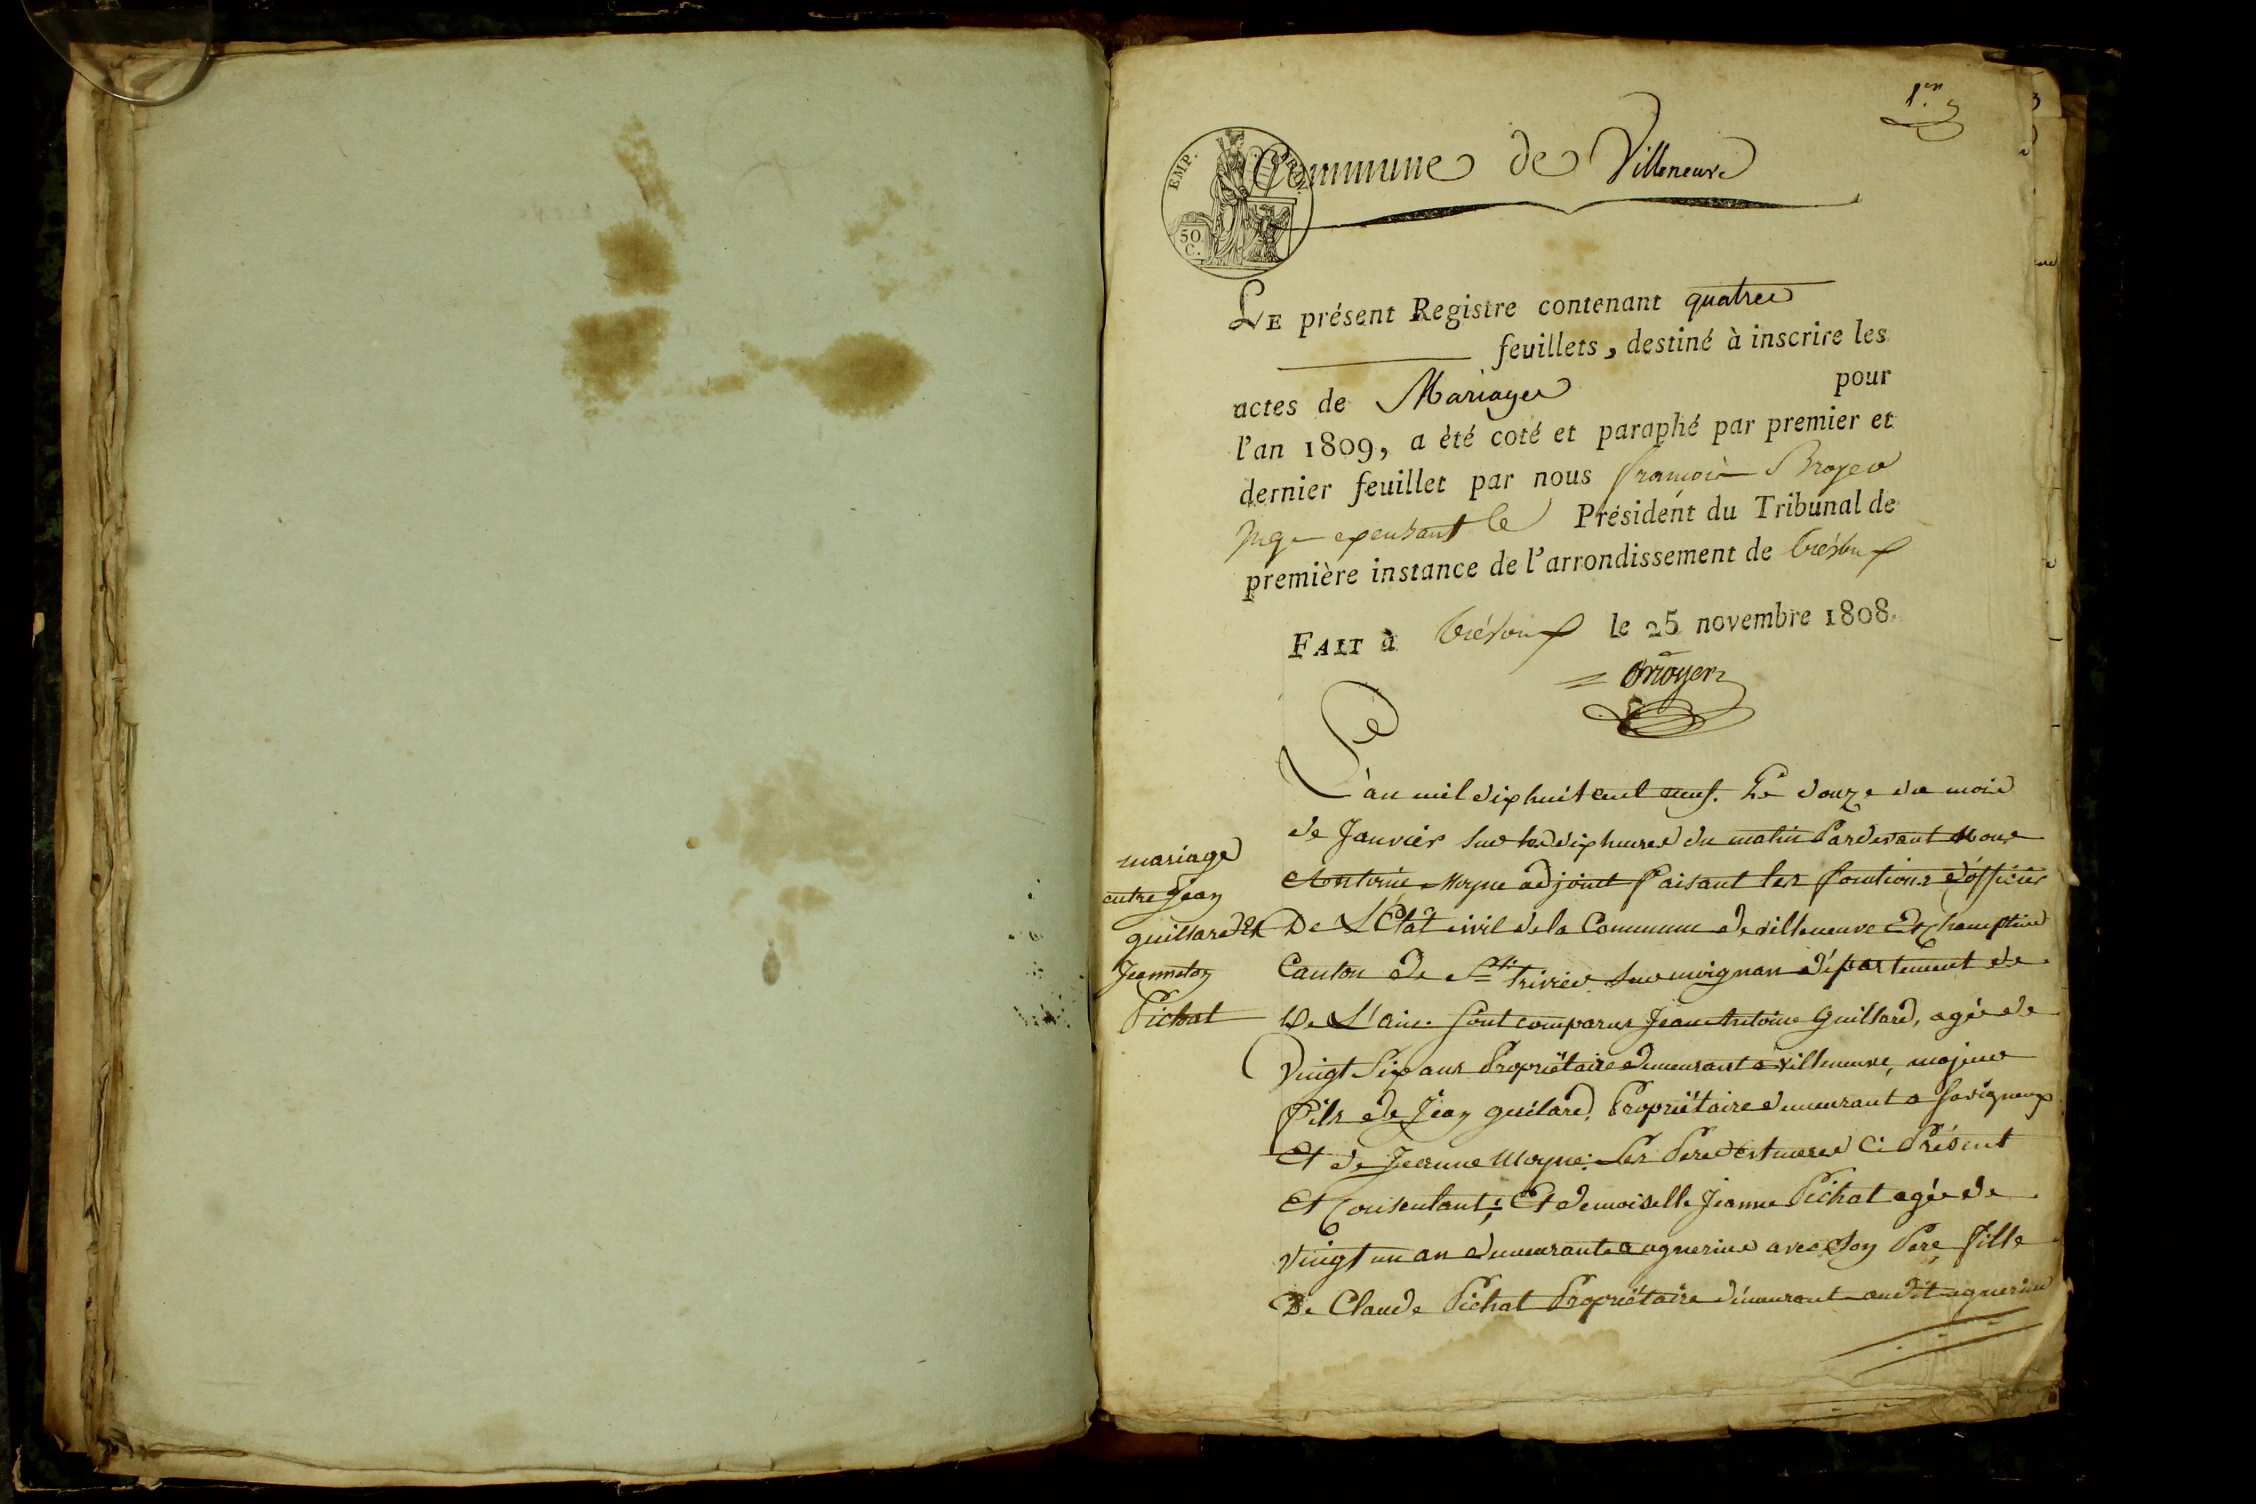 1er
EMP. FRAN.
50 C.
Commune de Villeneuve
LE présent Registre contenant quatre
feuillets, destiné à inscrire les
actes de Mariages pour
l'an 1809, a été coté et paraphé par premier et
dernier feuillet par nous françois Broyer
Juge exerçant le Président du Tribunal de
première instance de l'arrondissement de trévoux
FAIT à trévoux le 25 novembre 1808.
Broyer
mariage
entre Jean
guillard Et
Jeanneton
Pichat
L'an mil dix huit cent neuf. Le douze du mois
de Janvier sur les dix heures du matin Pardevant Nous
Antoine Moyne adjoint faisant les fonctions d'officier
De L'Etat civil de la Commune de villeneuve Et Champteins
Canton de St. trivier sur moignan département de
De L'ain. sont comparus Jean Antoine Guillard, agée de
Vingt Six ans Propriétaire demeurant a villeneuve, majeur
fils de Jean guilard, Propriétaire demeurant a Savigneux
Et de Jeanne Moyne. les Pere Et mere Ci Présent
Et Consentant; Et demoiselle Jeanne Pichat agée de
Vingt un an demeurante a agnerins avec Son Pere fille
De Claude Pichat Propriétaire démeurant audit agnerins